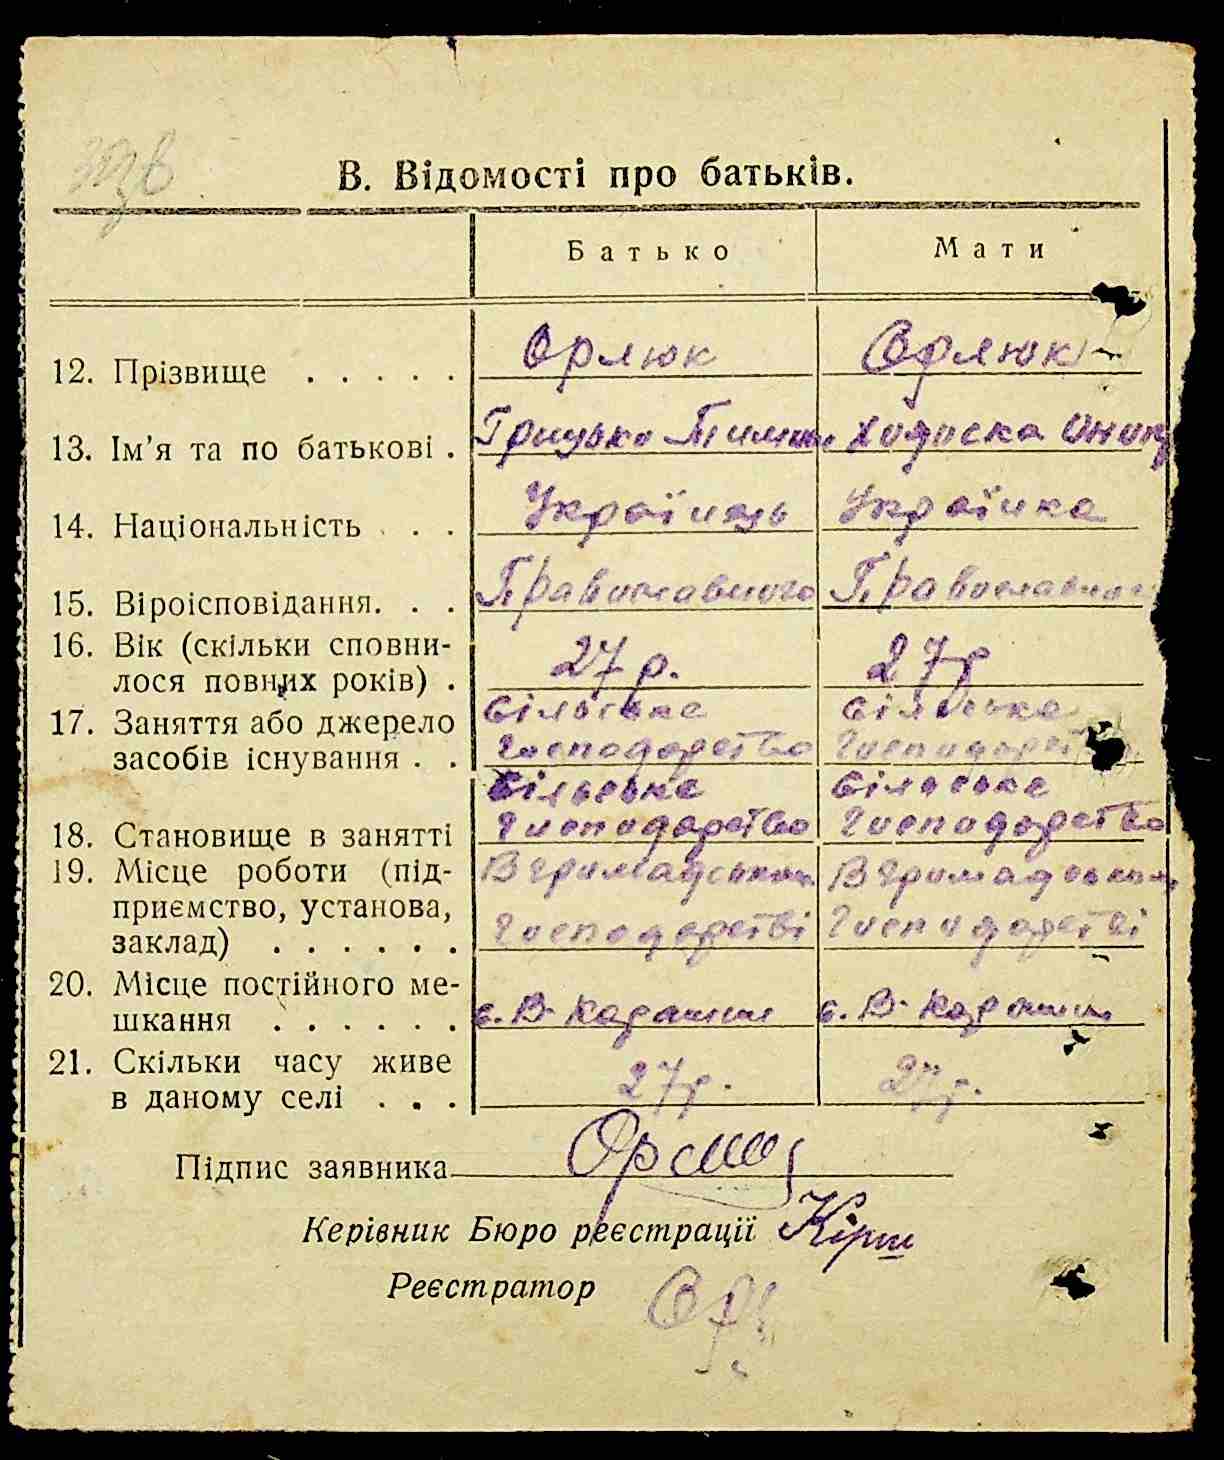 В. Відомості про батьків.
Батько Мати
12. Прізвище . . . . . Орлюк Орлюк
13. Ім'я та по батькові . Грицько Тимош. Ходоска Оноп
14. Національність . . . Українець Українка
15. Віроісповідання. . . Православного Православног
16. Вік (скільки сповни-
лося повних років) . 27 р. 27 р
17. Заняття або джерело сільське сільське
засобів існування . . господарство господарст
сільське сільське
18. Становище в занятті господарство господарство
19. Місце роботи (під- В громадському В громадському
приємство, установа,
заклад) . . . . . . господарстві господарстві
20. Місце постійного ме-
шкання . . . . . . с. В. Карашин с. В. Карашин
21. Скільки часу живе
в даному селі . . . 27 р. 27 р.
Підпис заявника
Керівник Бюро реєстрації
Реєстратор